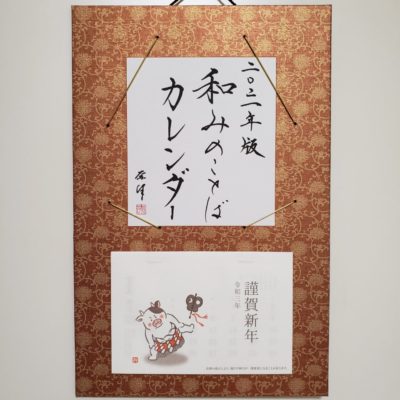 二〇二一年版
和みのことば
カレンダー
謹賀新年
令和三年